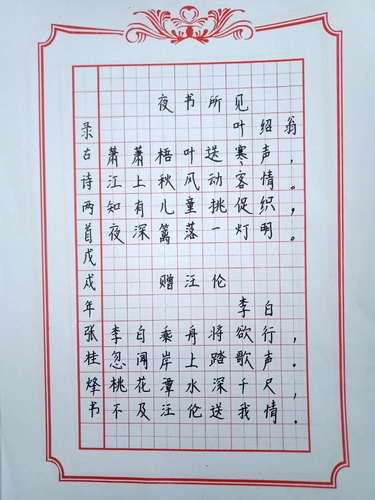 夜书所见
叶绍翁
萧萧梧叶送寒声，
江上秋风动客情。
知有儿童挑促织，
夜深篱落一灯明。
赠汪伦
李白
李白乘舟将欲行，
忽闻岸上踏歌声。
桃花潭水深千尺，
不及汪伦送我情。
录古诗两首戊戌年张桂烽书